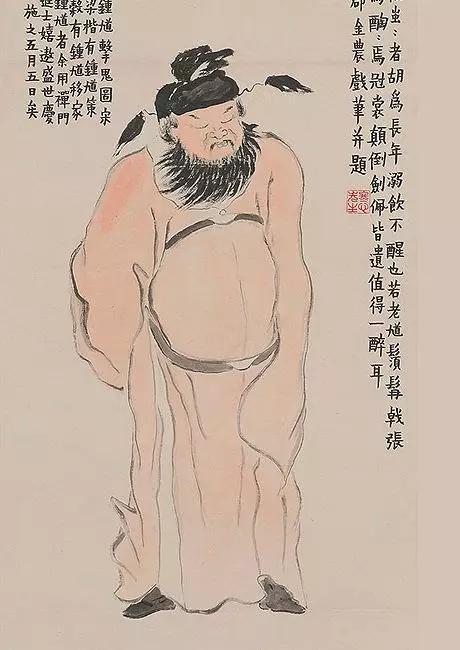 者胡爲長年溺飲不醒也若老馗鬚髯戟張
焉冠裳顛倒劍佩皆遺值得一醉耳
郡金農戲筆并題
鍾馗擊鬼圖宋
梁楷有鍾馗策
穀有鍾馗移家
鍾馗者余用禪門
進士嬉遨盛世慶
施之五月五日矣